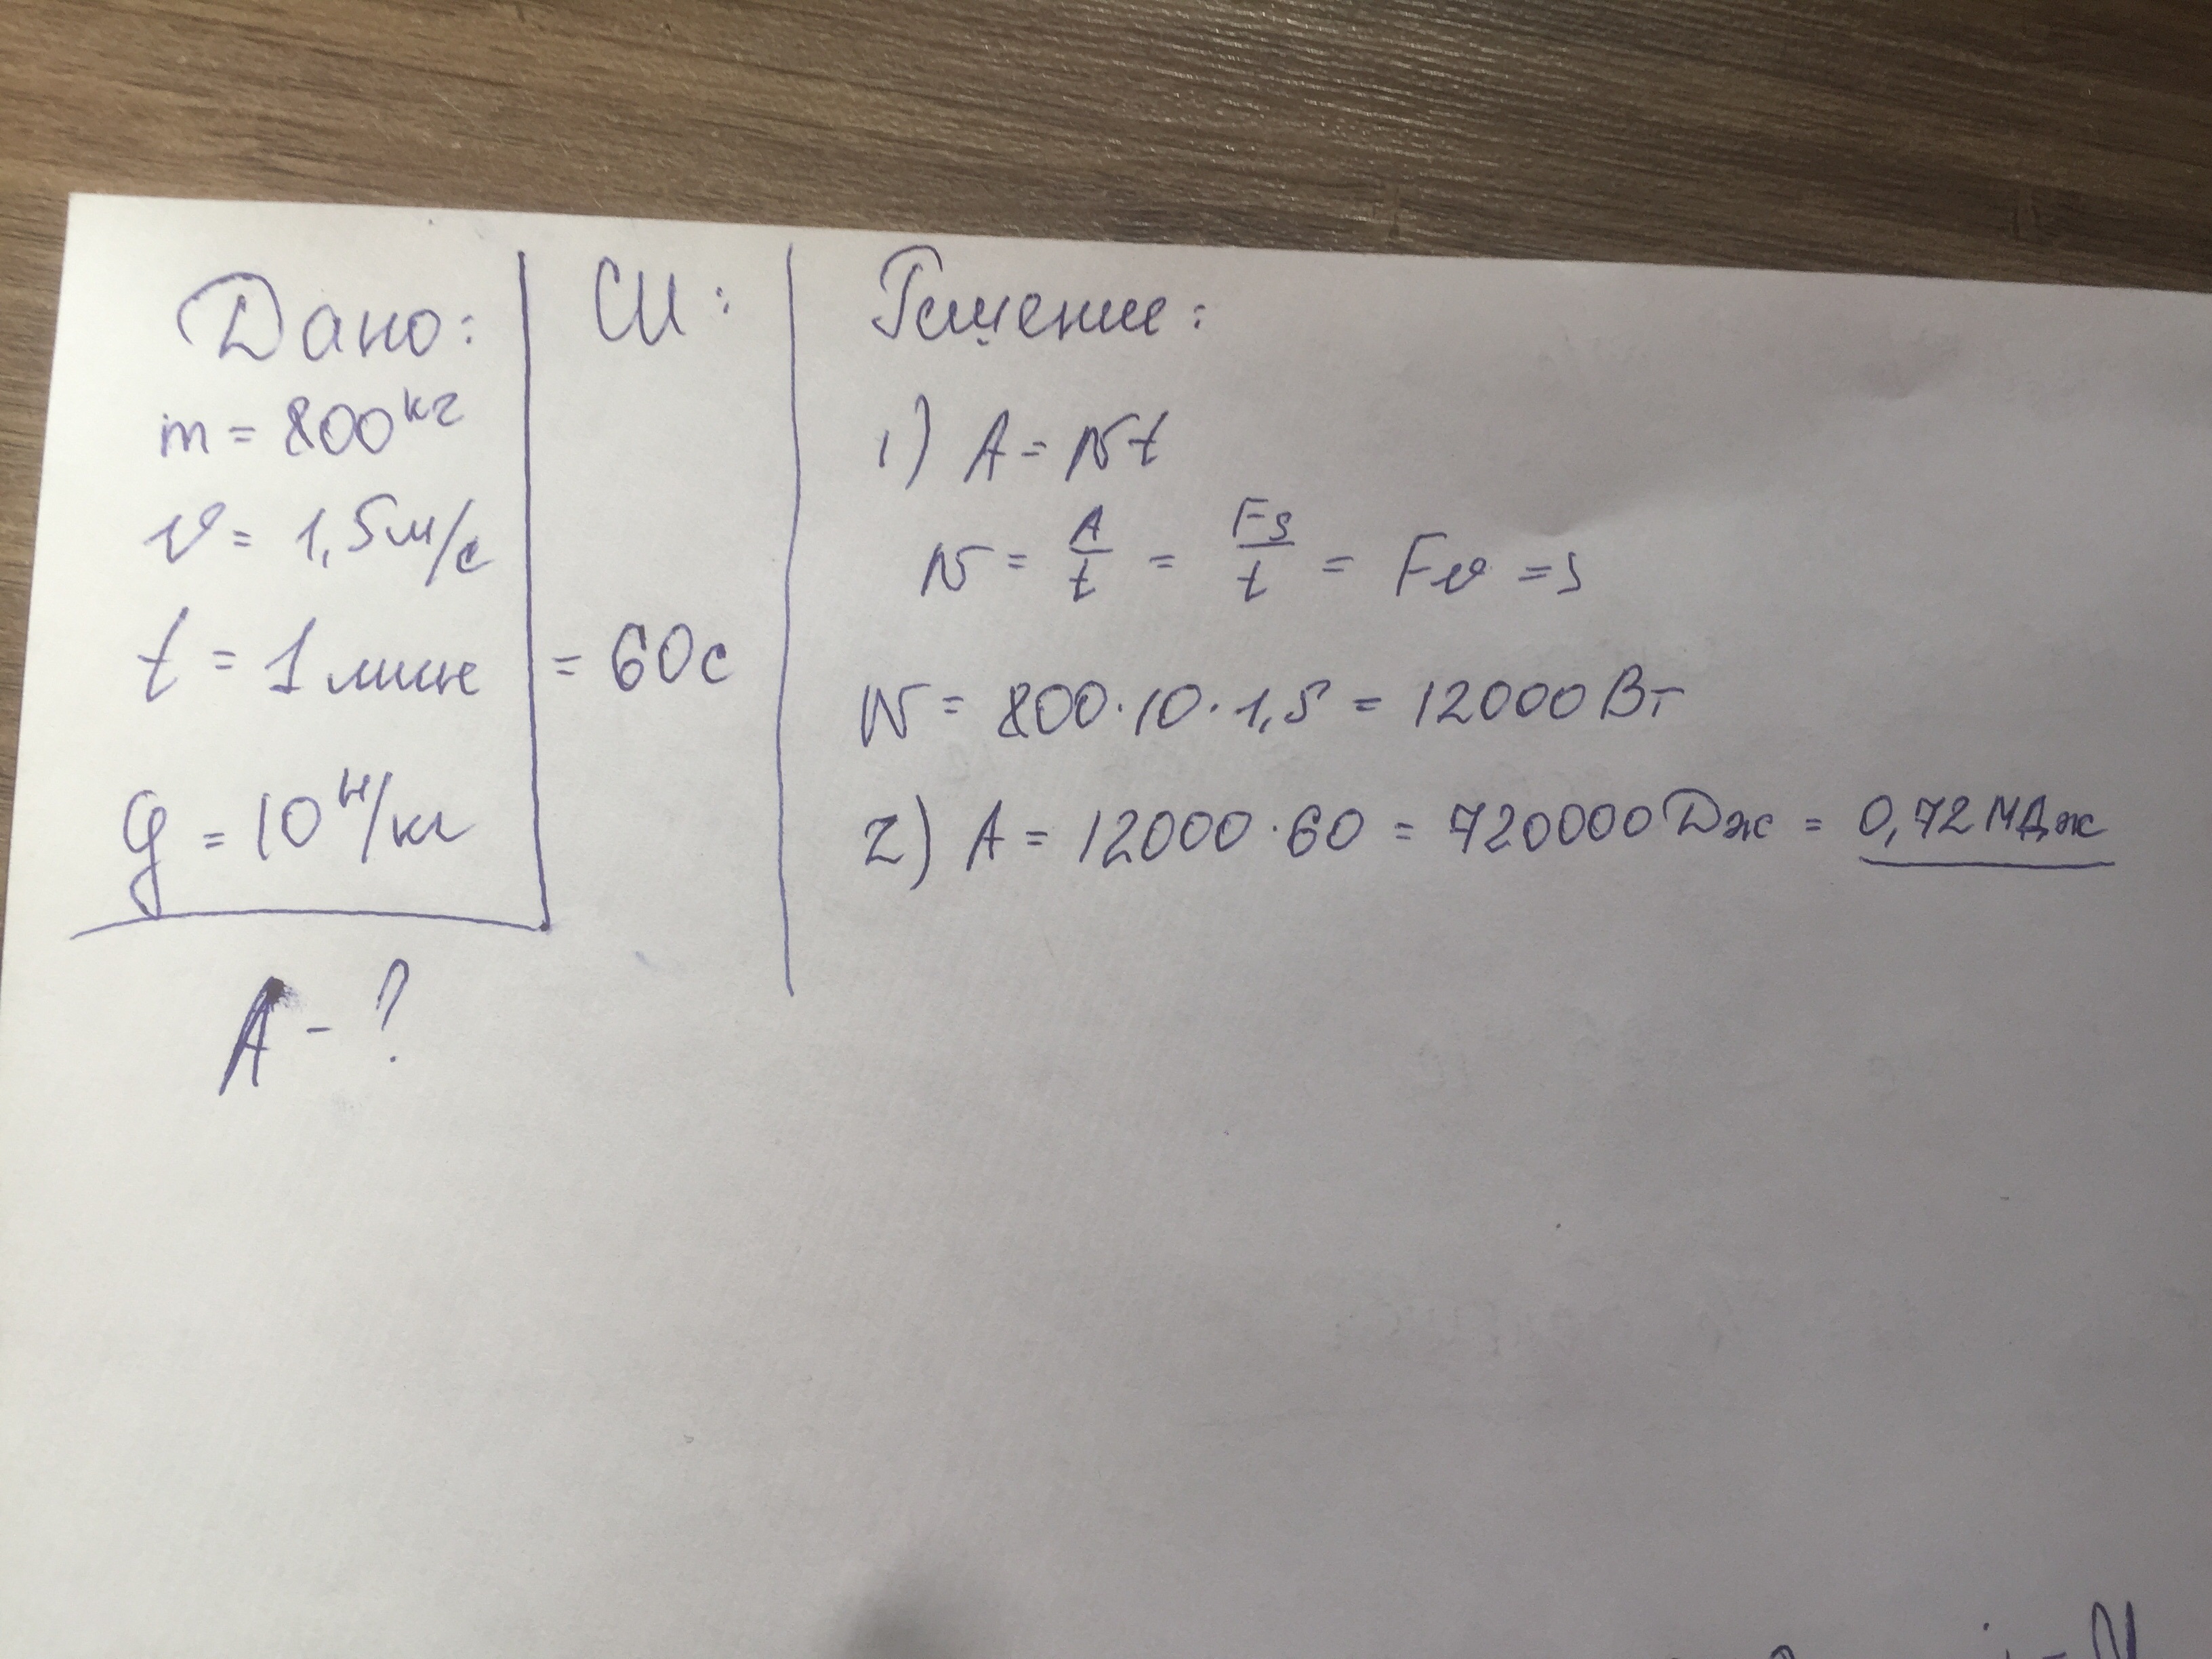 Дано:
m = 800 кг
v = 1,5 м/с
t = 1 мин
g = 10 Н/кг
A - ?
СИ:
= 60 с
Решение:
1) A = Nt
N = A/t = Fs/t = Fv =>
N = 800·10·1,5 = 12000 Вт
2) A = 12000·60 = 720000 Дж = 0,72 МДж